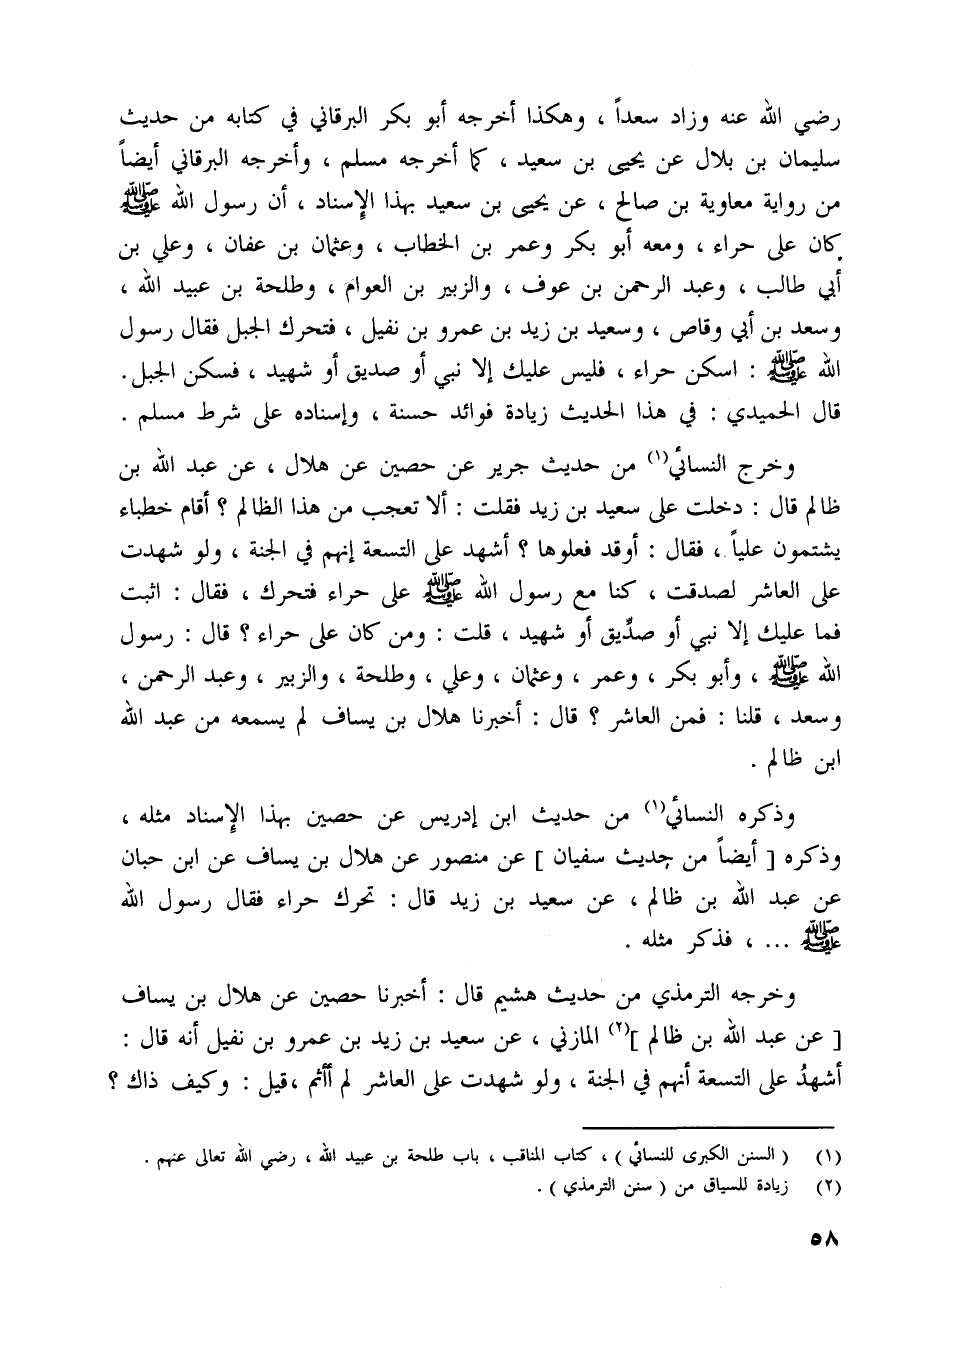 رضي الله عنه وزاد سعداً ، وهكذا أخرجه أبو بكر البرقاني في كتابه من حديث
سليمان بن بلال عن يحيى بن سعيد ، كما أخرجه مسلم ، وأخرجه البرقاني أيضاً
من رواية معاوية بن صالح ، عن يحيى بن سعيد بهذا الإسناد ، أن رسول الله ﷺ
كان على حراء ، ومعه أبو بكر وعمر بن الخطاب ، وعثمان بن عفان ، وعلي بن
أبي طالب ، وعبد الرحمن بن عوف ، والزبير بن العوام ، وطلحة بن عبيد الله ،
وسعد بن أبي وقاص ، وسعيد بن زيد بن عمرو بن نفيل ، فتحرك الجبل فقال رسول
الله ﷺ : اسكن حراء ، فليس عليك إلا نبي أو صديق أو شهيد ، فسكن الجبل .
قال الحميدي : في هذا الحديث زيادة فوائد حسنة ، وإسناده على شرط مسلم .
وخرج النسائي(١) من حديث جرير عن حصين عن هلال ، عن عبد الله بن
ظالم قال : دخلت على سعيد بن زيد فقلت : ألا تعجب من هذا الظالم ؟ أقام خطباء
يشتمون علياً ، فقال : أوقد فعلوها ؟ أشهد على التسعة إنهم في الجنة ، ولو شهدت
على العاشر لصدقت ، كنا مع رسول الله ﷺ على حراء فتحرك ، فقال : اثبت
فما عليك إلا نبي أو صدِّيق أو شهيد ، قلت : ومن كان على حراء ؟ قال : رسول
الله ﷺ ، وأبو بكر ، وعمر ، وعثمان ، وعلي ، وطلحة ، والزبير ، وعبد الرحمن ،
وسعد ، قلنا : فمن العاشر ؟ قال : أخبرنا هلال بن يساف لم يسمعه من عبد الله
ابن ظالم .
وذكره النسائي(١) من حديث ابن إدريس عن حصين بهذا الإسناد مثله ،
وذكره [ أيضاً من حديث سفيان ] عن منصور عن هلال بن يساف عن ابن حبان
عن عبد الله بن ظالم ، عن سعيد بن زيد قال : تحرك حراء فقال رسول الله
ﷺ ... ، فذكر مثله .
وخرجه الترمذي من حديث هشيم قال : أخبرنا حصين عن هلال بن يساف
[ عن عبد الله بن ظالم ](٢) المازني ، عن سعيد بن زيد بن عمرو بن نفيل أنه قال :
أشهدُ على التسعة أنهم في الجنة ، ولو شهدت على العاشر لم أأثم ،قيل : وكيف ذاك ؟
(١) ( السنن الكبرى للنسائي ) ، كتاب المناقب ، باب طلحة بن عبيد الله ، رضي الله تعالى عنهم .
(٢) زيادة للسياق من ( سنن الترمذي ) .
٥٨